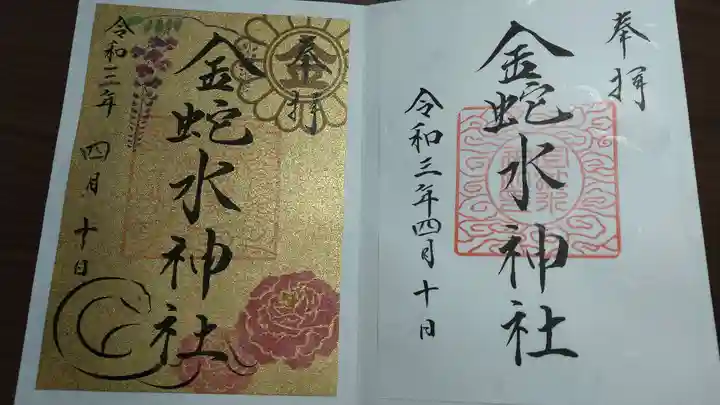 奉拝
金蛇水神社
令和三年四月十日
金
奉拝
金蛇水神社
令和三年 四月 十日